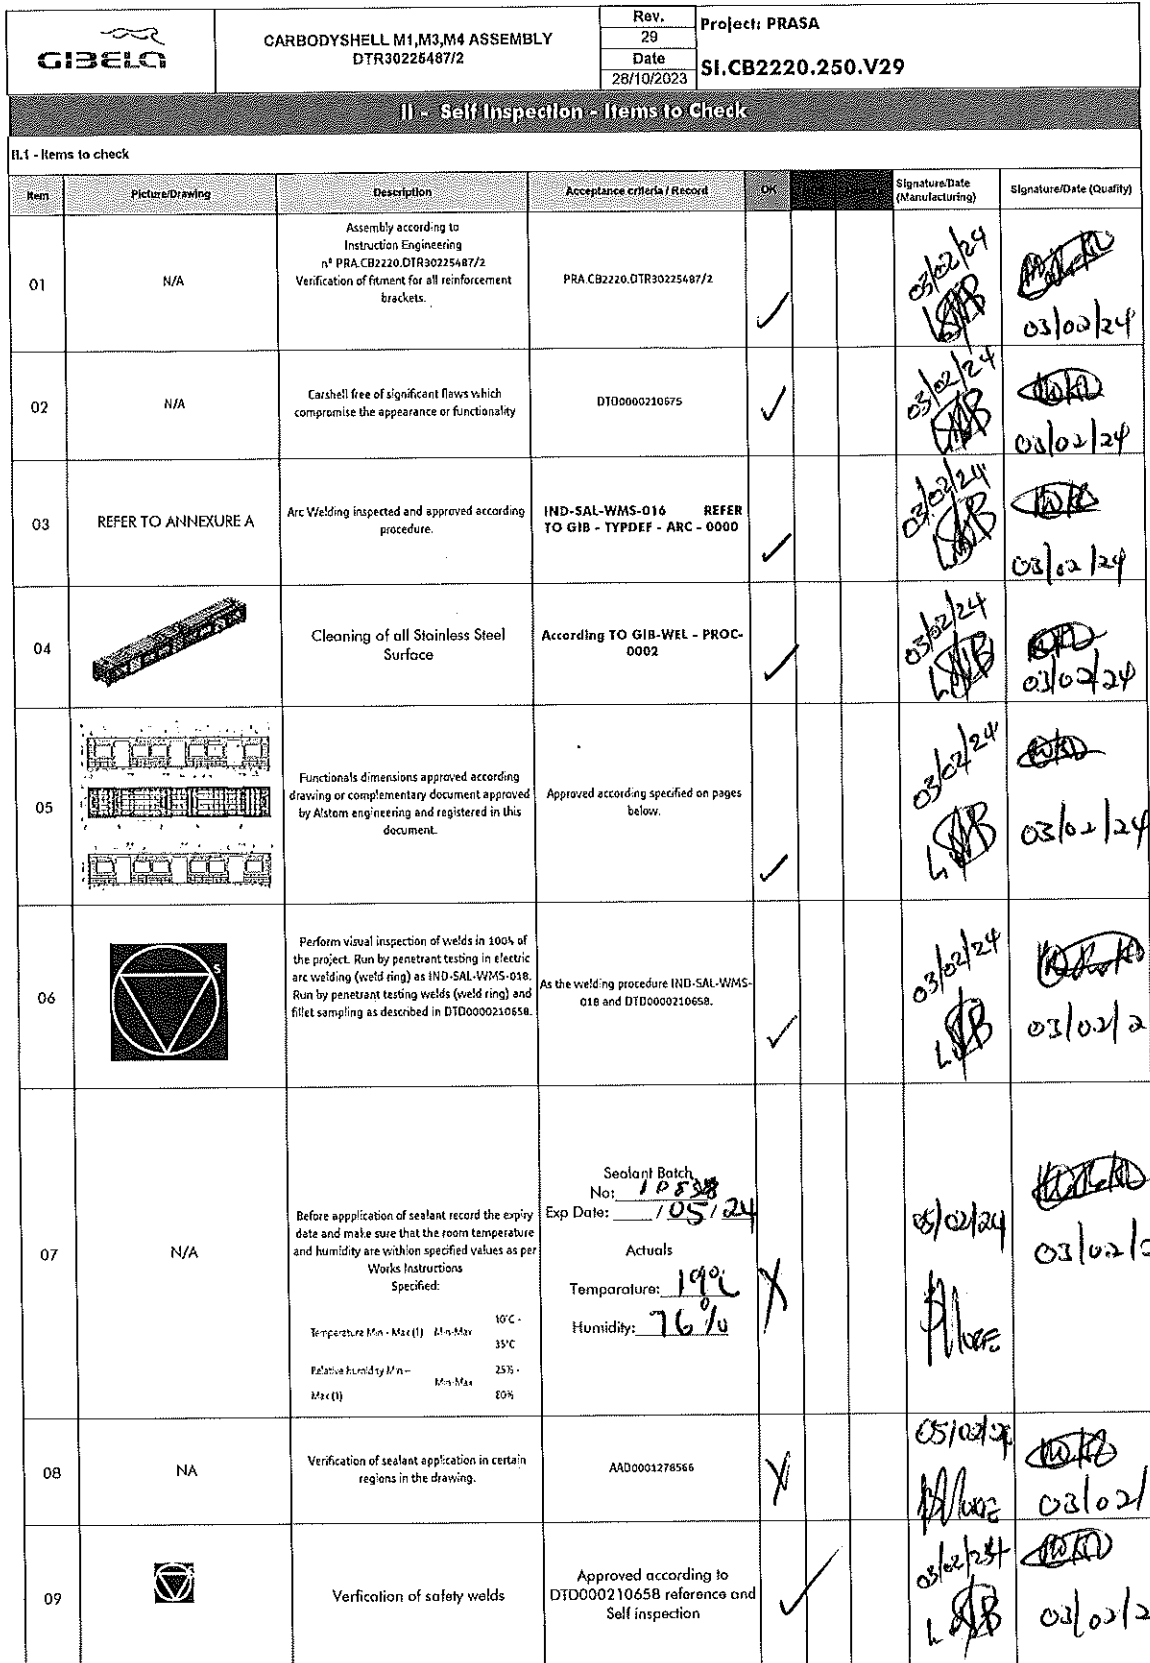 GIBELA
CARBODYSHELL M1,M3,M4 ASSEMBLY
DTR30225487/2
Rev.
29
Date
28/10/2023
Project: PRASA
SI.CB2220.250.V29
II - Self Inspection - Items to Check
II.1 - Items to check
Item
Picture/Drawing
Description
Acceptance criteria / Record
OK
Signature/Date
(Manufacturing)
Signature/Date (Quality)
01
N/A
Assembly according to
Instruction Engineering
n° PRA.CB2220.DTR30225487/2
Verification of fitment for all reinforcement
brackets.
PRA.CB2220.DTR30225487/2
03/02/24
03/02/24
02
N/A
Carshell free of significant flaws which
compromise the appearance or functionality
DTD0000210675
03/02/24
03/02/24
03
REFER TO ANNEXURE A
Arc Welding inspected and approved according
procedure.
IND-SAL-WMS-016 REFER
TO GIB - TYPDEF - ARC - 0000
03/02/24
03/02/24
04
Cleaning of all Stainless Steel
Surface
According TO GIB-WEL - PROC-
0002
03/02/24
03/02/24
05
Functionals dimensions approved according
drawing or complementary document approved
by Alstom engineering and registered in this
document.
Approved according specified on pages
below.
03/02/24
03/02/24
06
S
Perform visual inspection of welds in 100% of
the project. Run by penetrant testing in electric
arc welding (weld ring) as IND-SAL-WMS-018.
Run by penetrant testing welds (weld ring) and
fillet sampling as described in DTD0000210658.
As the welding procedure IND-SAL-WMS-
018 and DTD0000210658.
03/02/24
03/02/2
07
N/A
Before appplication of sealant record the expiry
date and make sure that the room temperature
and humidity are withion specified values as per
Works Instructions
Specified:
Temperature Min - Max (1) Min-Max 10°C -
35°C
Relative humidity Min –
Max (1) Min-Max 25% -
80%
Sealant Batch
No:
Exp Date: /05/24
Actuals
Temparature: 19°C
Humidity: 76%
05/02/24
03/02/2
08
NA
Verification of sealant application in certain
regions in the drawing.
AAD0001278566
05/02/24
03/02/
09
S
Verfication of safety welds
Approved according to
DTD000210658 reference and
Self inspection
03/02/24
03/02/2